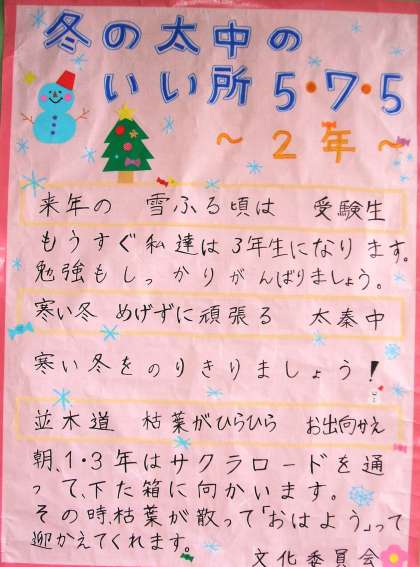 冬の太中の
いい所5・7・5
～2年～
来年の 雪ふる頃は 受験生
もうすぐ私達は3年生になります。
勉強もしっかりがんばりましょう。
寒い冬 めげずに頑張る 太秦中
寒い冬をのりきりましょう!
並木道 枯葉がひらひら お出向かえ
朝、1・3年はサクラロードを通
って、下た箱に向かいます。
その時、枯葉が散って「おはよう」って
迎かえてくれます。
文化委員会